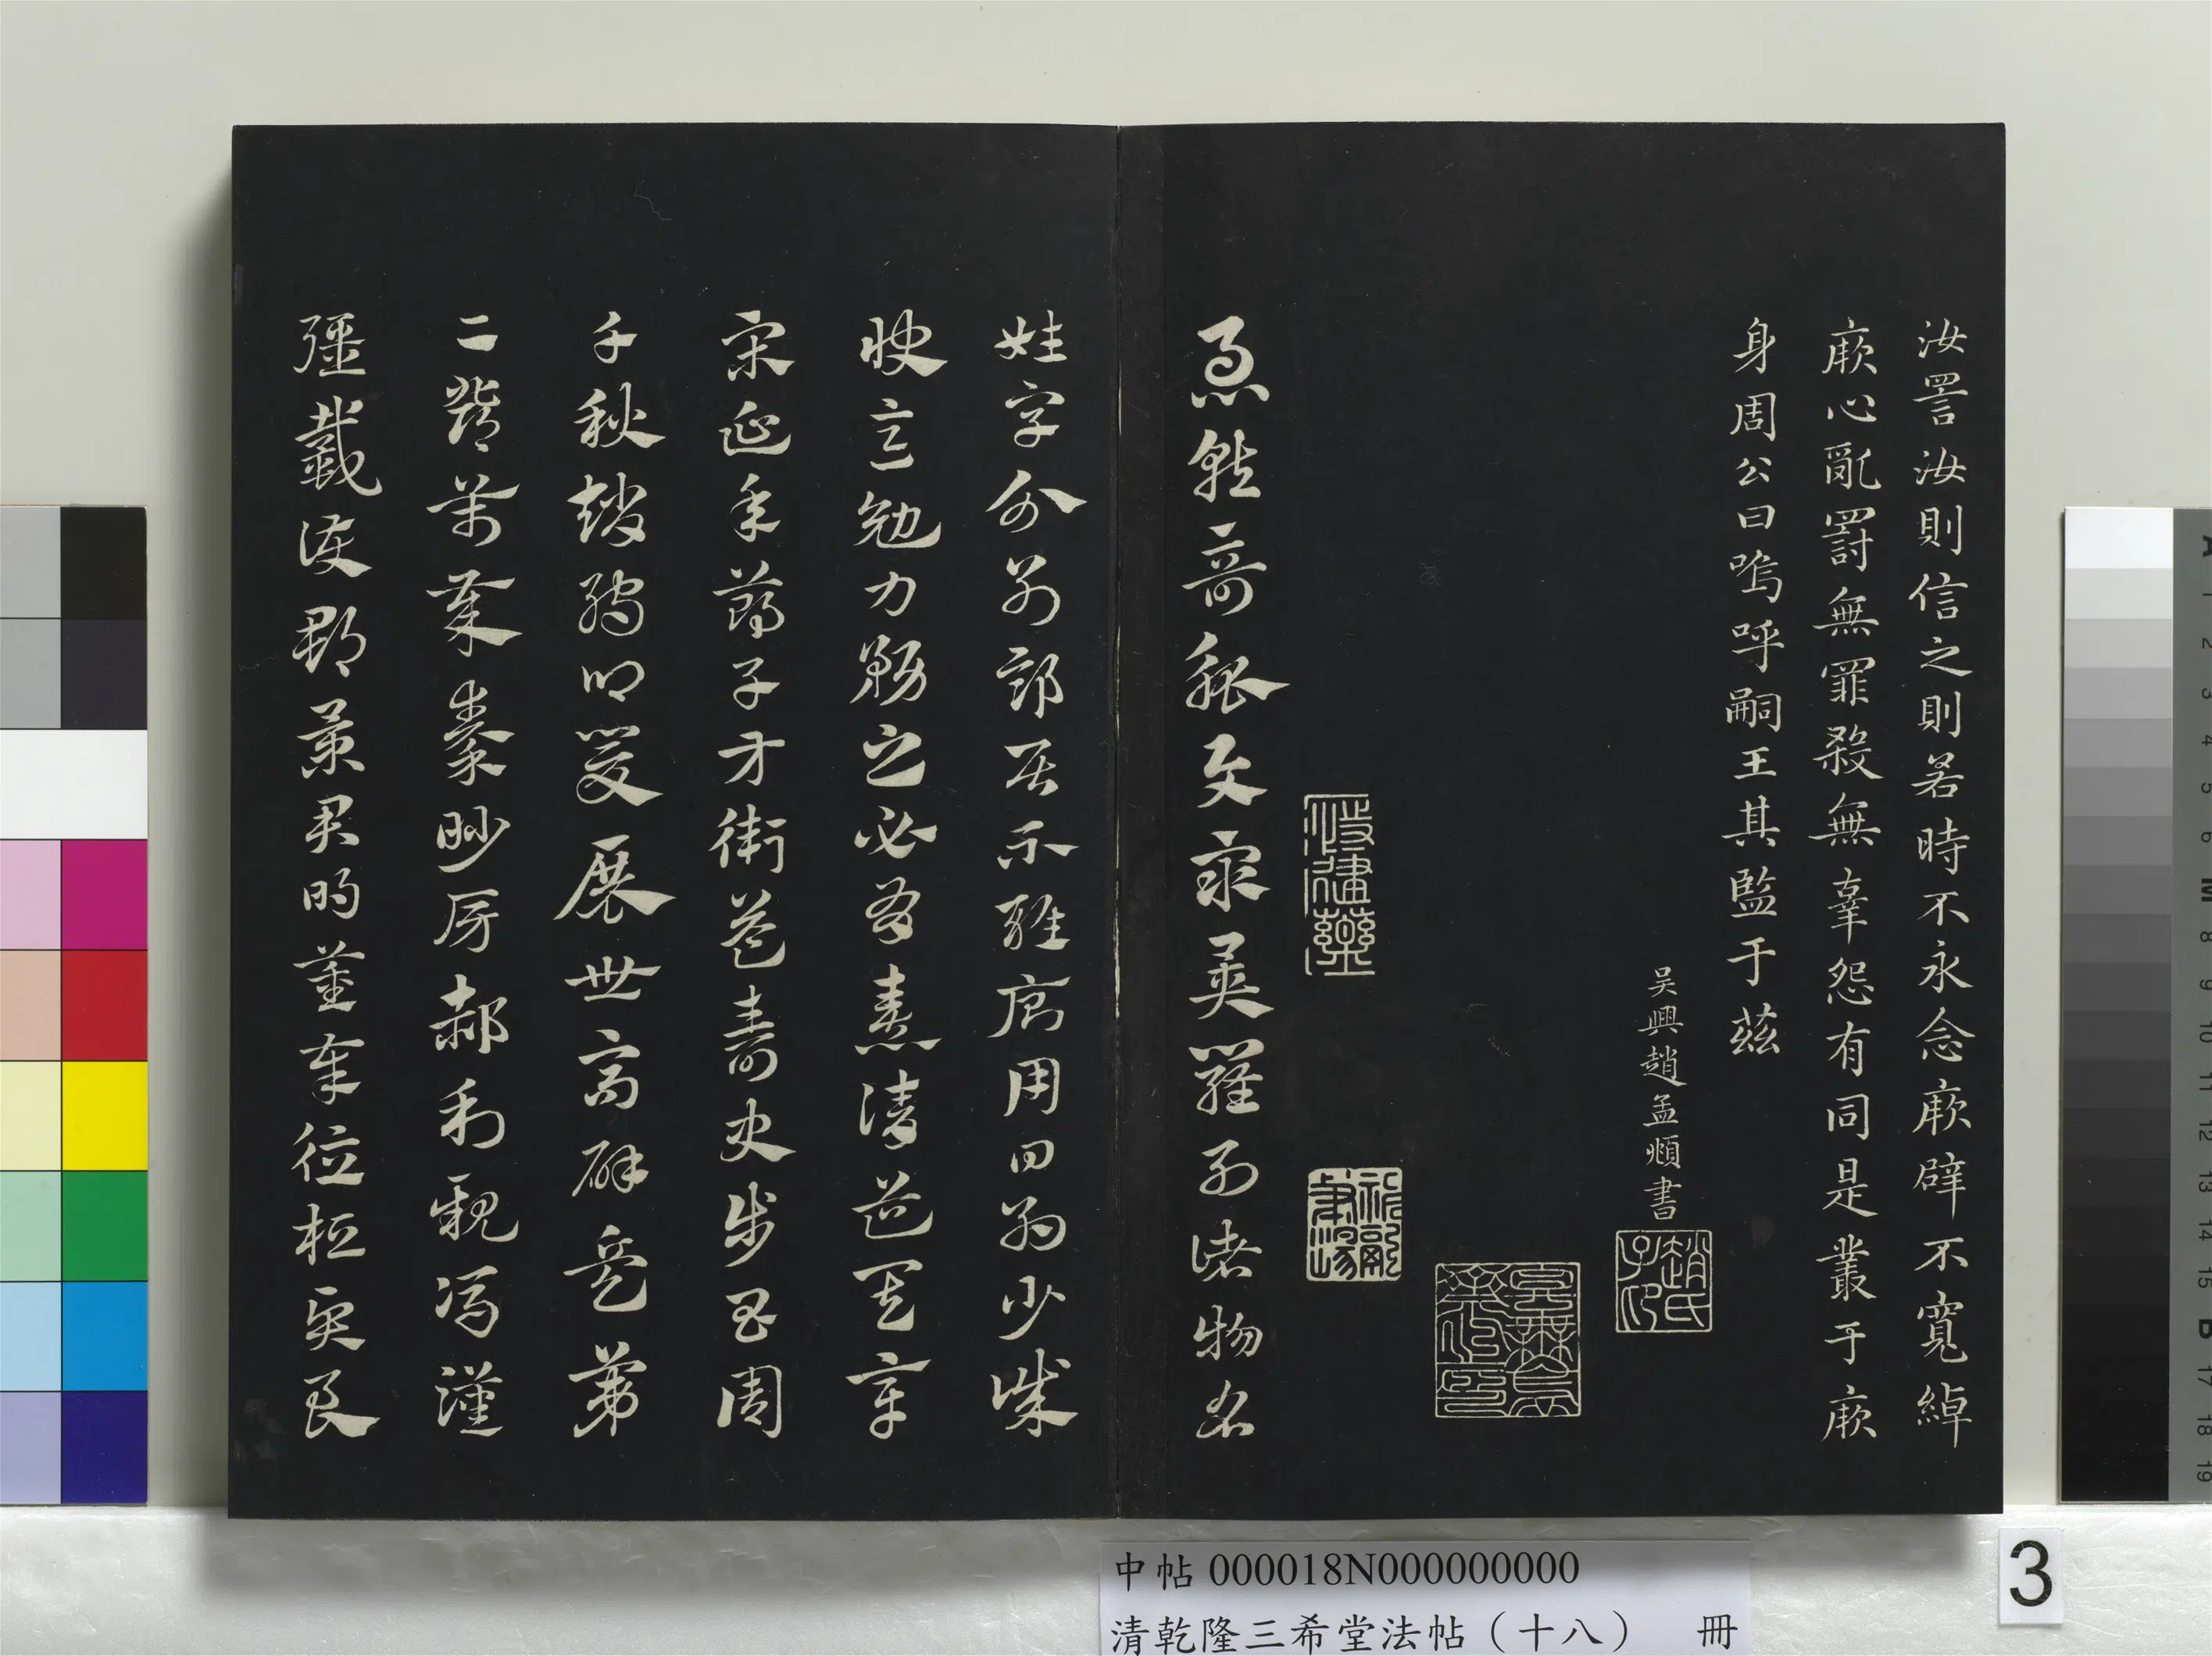 汝詈汝則信之則若時不永念厥辟不寬綽
厥心亂罰無罪殺無辜怨有同是叢于厥
身周公曰嗚呼嗣王其監于茲
吴興趙孟頫書
趙氏子卬
急就奇觚與衆異羅列諸物名
姓字分別部居不雜廁用日約少誠
快意勉力務之必有憙請道其章
宋延年鄭子方衛益壽史步昌周
千秋趙孺卿爰展世高辟兵第
二鄧萬歲秦眇房郝利親馮漢
彊戴護郡景君明董奉德桓賢良
中帖 000018N000000000
清乾隆三希堂法帖（十八） 冊
3